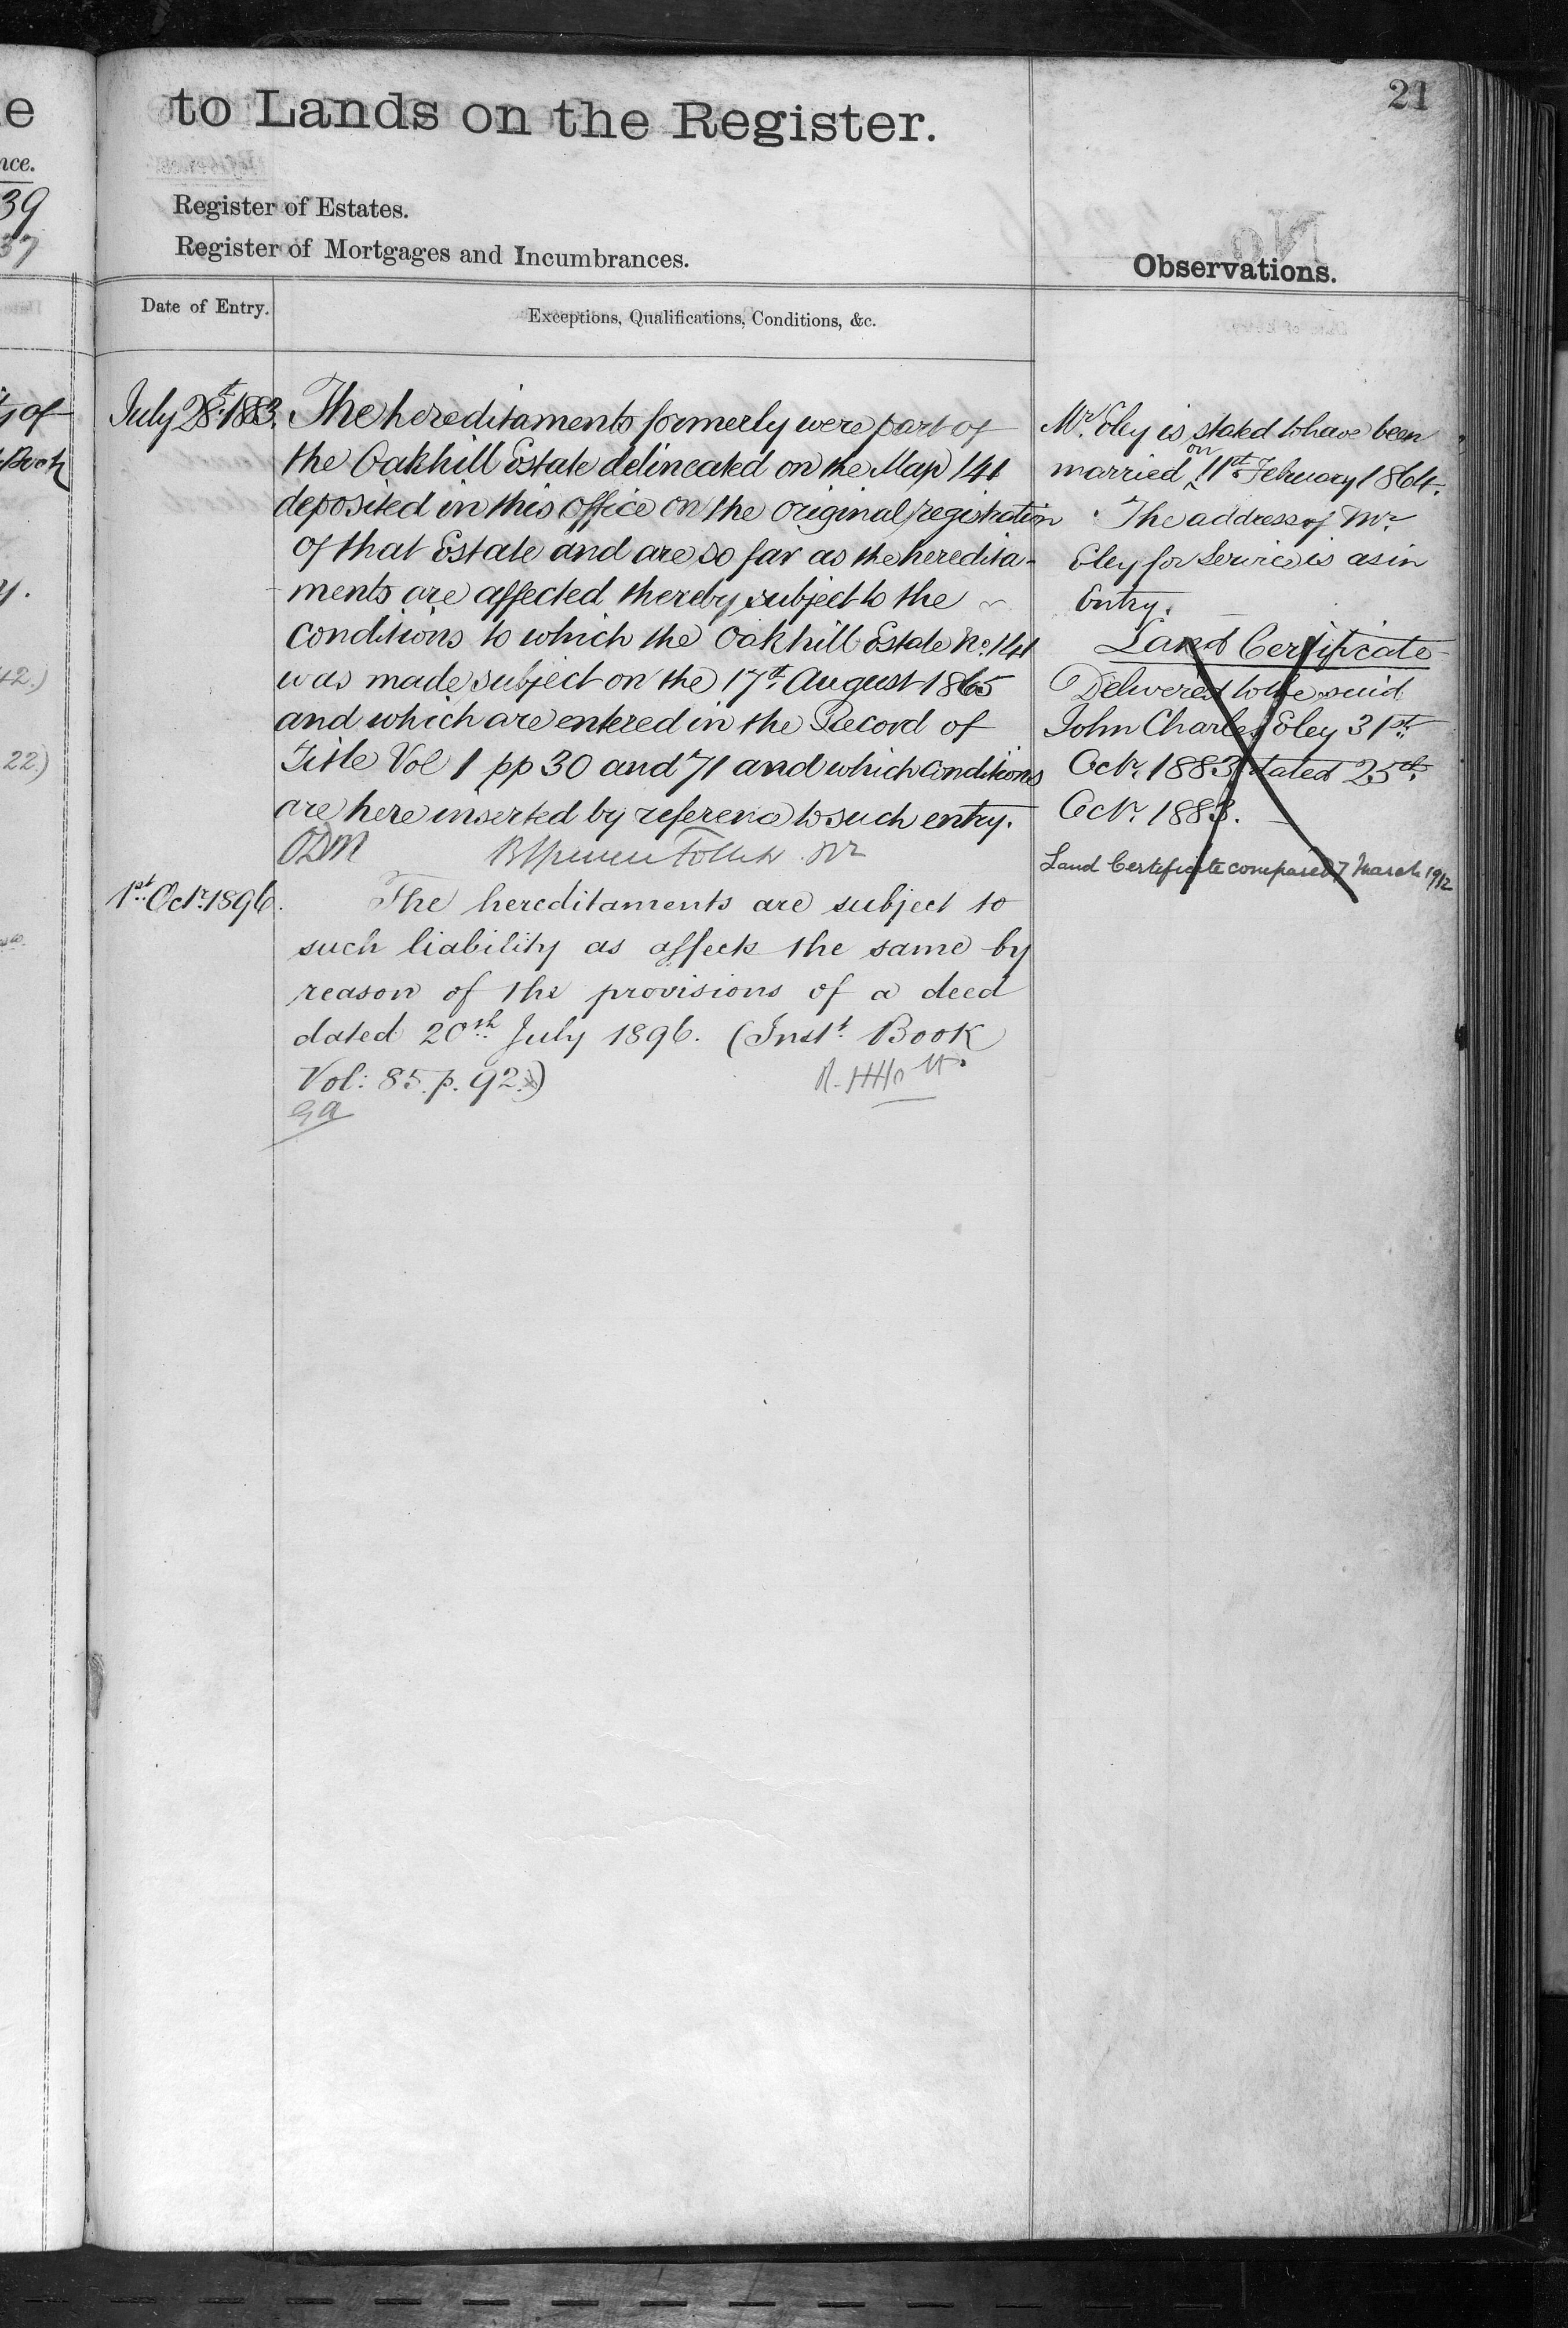 21
to Lands on the Register.
Register of Estates.
Register of Mortgages and Incumbrances.
Observations.
Date of Entry.
Exceptions, Qualifications, Conditions, &c.
July 28t. 1883. The hereditaments formerly were part of
the Oakhill Estate delineated on the Map 141
deposited in this Office on the original registration
of that Estate and are so far as the heredita-
ments are affected thereby subject to the
conditions to which the Oakhill Estate No. 141
was made subject on the 17t. August 1865
and which are entered in the Record of
Title Vol 1 pp 30 and 71 and which conditions
are here inserted by reference to such entry.
ODM
1st. Octr. 1896. The hereditaments are subject to
such liability as affects the same by
reason of the provisions of a deed
dated 20th. July 1896. (Instt. Book
Vol: 85. p. 92.)
Mr. Eley is stated to have been
married on 11th. February 1864.
The address of Mr
Eley for Service is as in
Entry.
Land Certificate
Delivered to the said
John Charles Eley 31st.
Octr. 1883 dated 25th.
Octr. 1883.
Land Certificate compared 7 March 1912
e
nce.
39
37
of
Book
y.
42.)
22.)